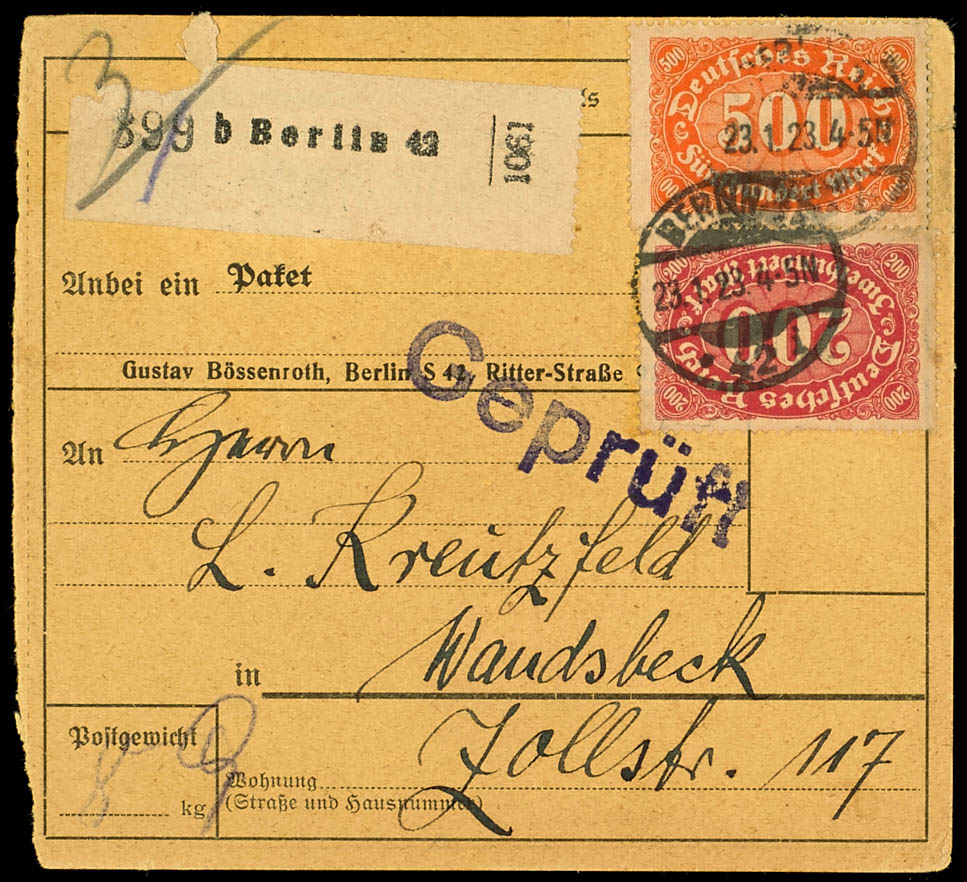 3
899 b Berlin 42
1061
500 500
Deutsches Reich
500
Fünfhundert Mark
23.1.23.4-5N
BERLIN
23.1.23.4-5N
42 i
200 200
Zweihundert Mark
200
Deutsches Reich
200 200
Anbei ein Paket
Gustav Bössenroth, Berlin S 42, Ritter-Straße
Geprüft
An Herrn
L. Kreutzfeld
in Wandsbeck
Zollstr. 117
Postgewicht
kg
Wohnung
(Straße und Hausnummer)